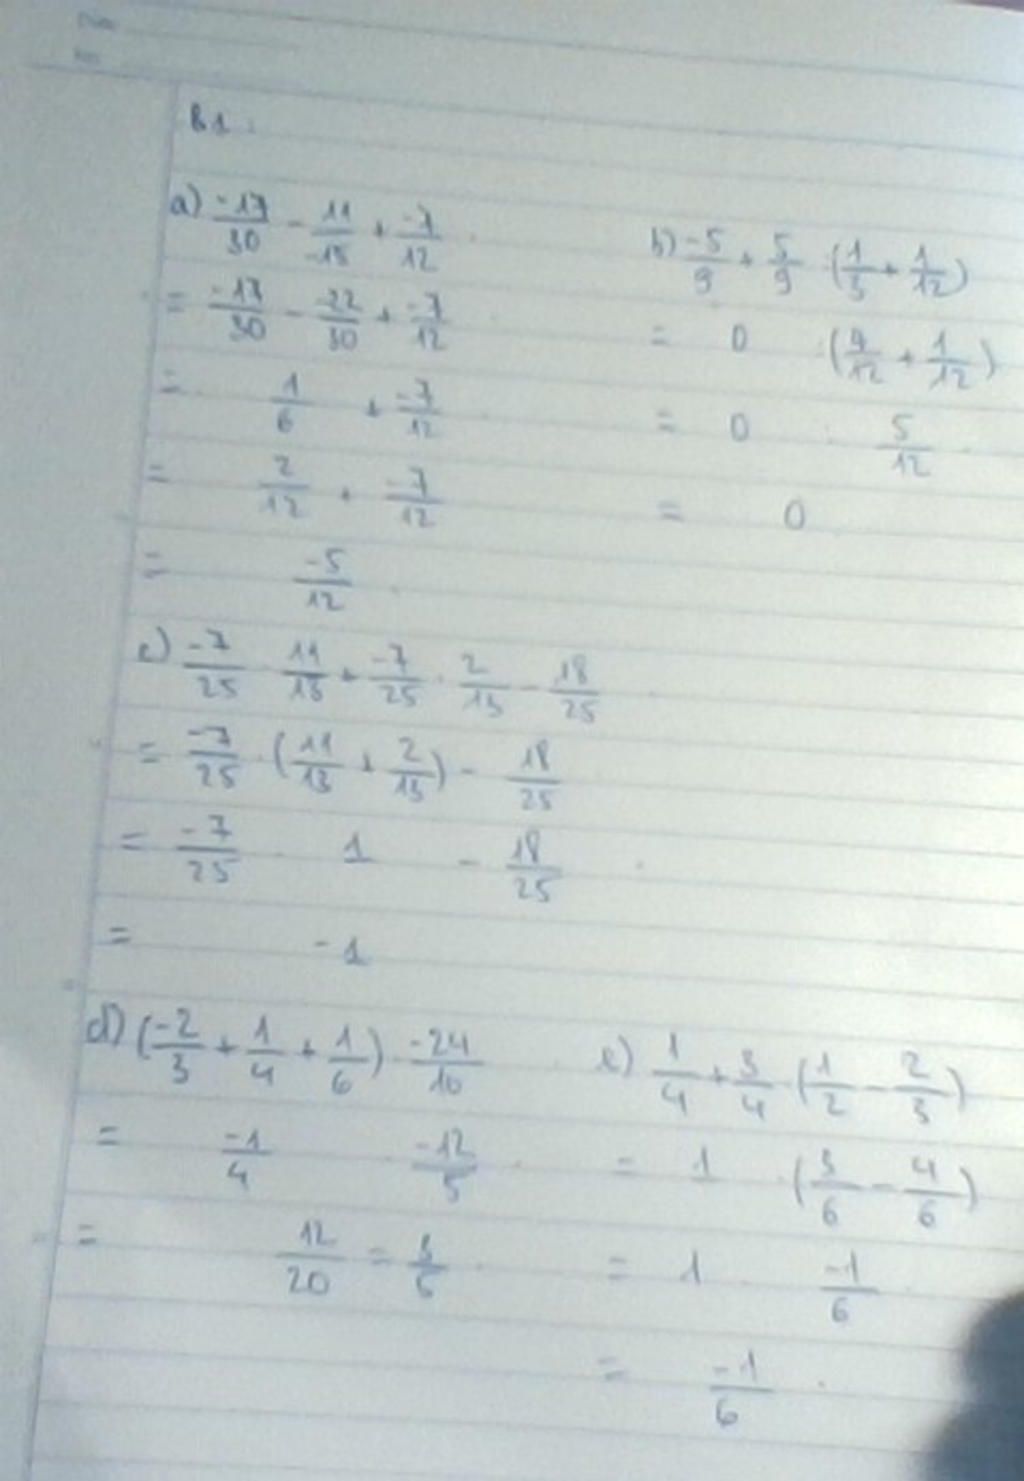 B1:
a) -17/30 - 11/-15 + -7/12
= -17/30 - -22/30 + -7/12
= 1/6 + -7/12
= 2/12 + -7/12
= -5/12
b) -5/9 + 5/9 · (1/3 + 1/12)
= 0 · (4/12 + 1/12)
= 0 · 5/12
= 0
c) -7/25 · 11/13 + -7/25 · 2/13 - 18/25
= -7/25 · (11/13 + 2/13) - 18/25
= -7/25 · 1 - 18/25
= -1
d) (-2/3 + 1/4 + 1/6) · -24/10
= -1/4 · -12/5
= 12/20 = 3/5
e) 1/4 + 3/4 · (1/2 - 2/3)
= 1 · (3/6 - 4/6)
= 1 · -1/6
= -1/6